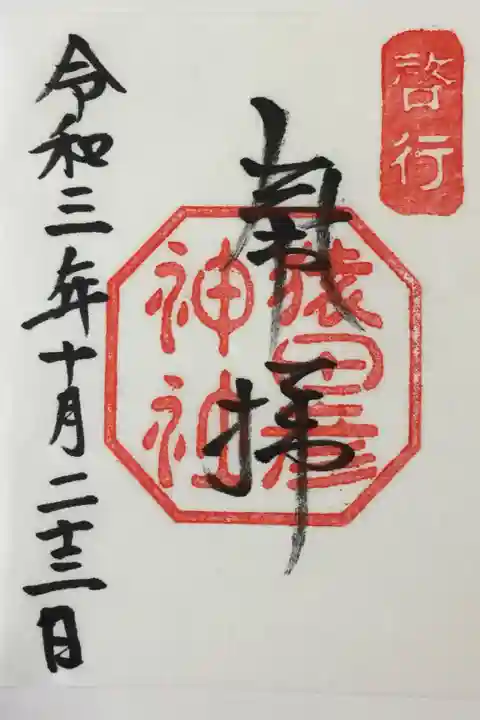 啓行
奉拝
猿田彦
神社
令和三年十月二十三日